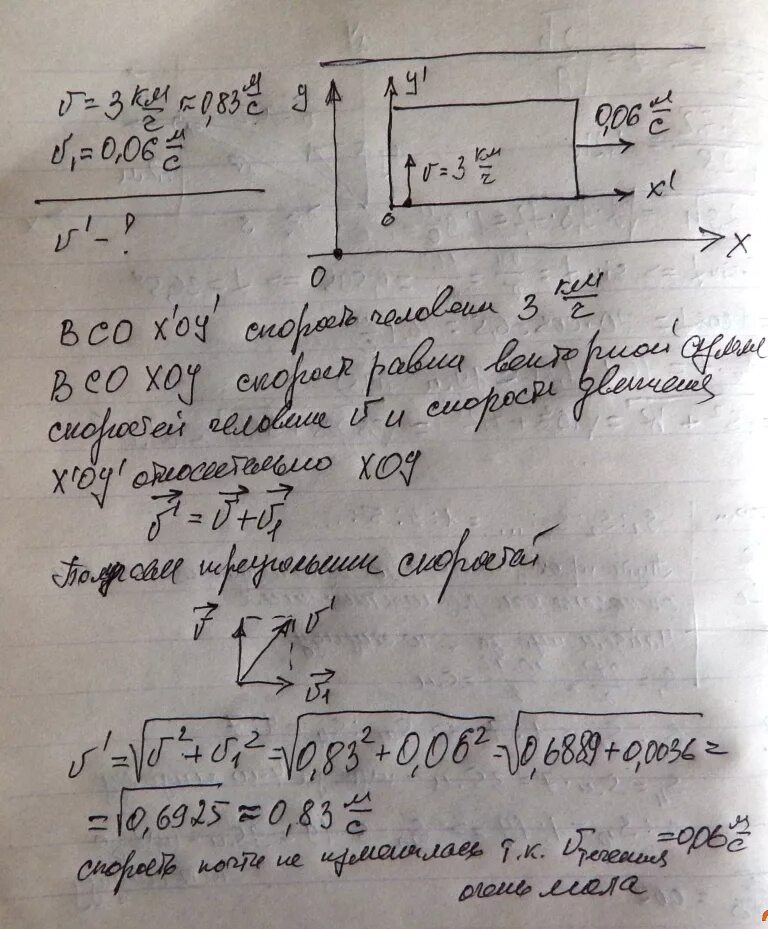 v = 3 км/ч ≈ 0,83 м/с
v₁ = 0,06 м/с
v' - ?
y
y'
0,06 м/с
v = 3 км/ч
x'
0
x
0
В СО X'OY' скорость человека 3 км/ч
В СО XOY скорость равна векторной сумме
скоростей человека v и скорости движения
X'OY' относительно XOY
v⃗' = v⃗ + v⃗₁
Получаем треугольник скоростей
v⃗
v'
v⃗₁
v' = √(v² + v₁²) = √(0,83² + 0,06²) = √(0,6889 + 0,0036) =
= √0,6925 ≈ 0,83 м/с
скорость почти не изменилась т.к. v течения = 0,06 м/с
очень мала